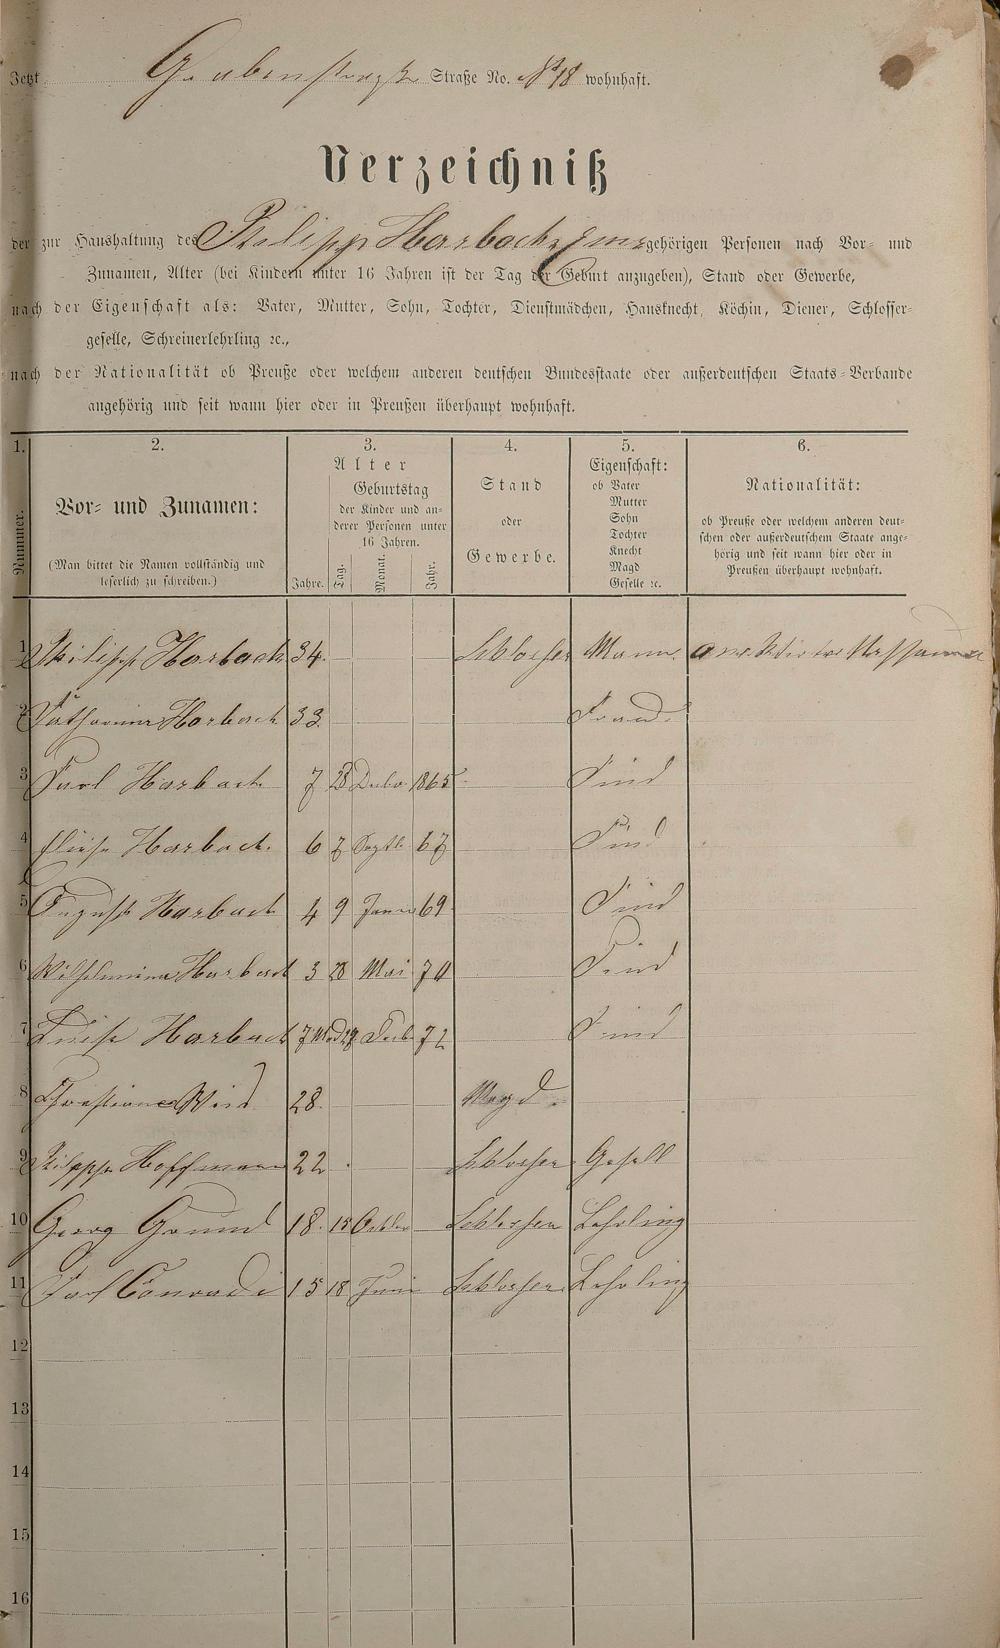 Jetzt Grabenstraße Straße No. No 18 wohnhaft.
Verzeichniß
der zur Haushaltung des Philipp Harbach, Ems gehörigen Personen nach Vor- und
Zunamen, Alter (bei Kindern unter 16 Jahren ist der Tag der Geburt anzugeben), Stand oder Gewerbe,
nach der Eigenschaft als: Vater, Mutter, Sohn, Tochter, Dienstmädchen, Hausknecht, Köchin, Diener, Schlosser-
geselle, Schreinerlehrling ꝛc.,
nach der Nationalität ob Preuße oder welchem anderen deutschen Bundesstaate oder außerdeutschen Staats-Verbande
angehörig und seit wann hier oder in Preußen überhaupt wohnhaft.
1. 2. 3. 4. 5. 6.
Nummer.
Vor- und Zunamen:
(Man bittet die Namen vollständig und
leserlich zu schreiben.)
Alter
Jahre.
Geburtstag
der Kinder und an-
derer Personen unter
16 Jahren.
Tag. Monat. Jahr.
Stand
oder
Gewerbe.
Eigenschaft:
ob Vater
Mutter
Sohn
Tochter
Knecht
Magd
Geselle ꝛc.
Nationalität:
ob Preuße oder welchem anderen deut-
schen oder außerdeutschem Staate ange-
hörig und seit wann hier oder in
Preußen überhaupt wohnhaft.
1 Philipp Harbach 34. Schlosser Mann.
2 Katharina Harbach 33. Frau
3 Karl Harbach 7 28 1865 Kind
4 Eliese Harbach. 6 7 Septb 67 Kind
5 August Harbach 4 9 Janu 69 Kind
6 Wilhelmina Harbach 3 28 Mai 70 Kind
7 Luise Harbach 7 Mo 72 Kind
8 Christiane 28. Magd.
9 Philipp Hoffmann 22 Schlosser Gesell
10 Georg Grund 18. 15 Octbr Schlosser Lehrling
11 Karl Conradi 15 18 Juni Schlosser Lehrling
12
13
14
15
16